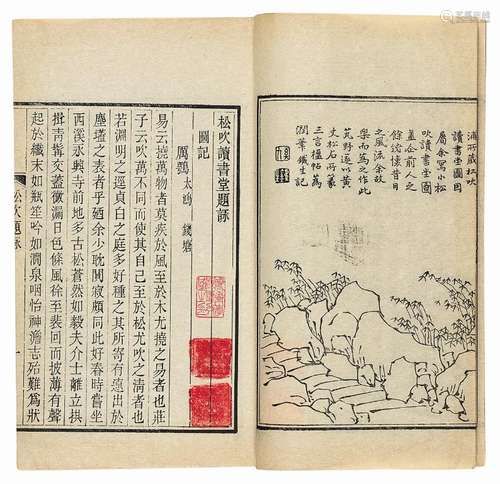 浦所藏松吹
讀書堂圖因
屬余寫小松
吹讀書堂圖
盖企前人之
懷昔日
之風流余故
樂而為之作此
荒野遂以黃
文松石所篆
三言楹帖為
潤筆鐵生記
松吹讀書堂題詠
圖記
厲鶚 太鴻 錢塘
易云撓萬物者莫疾於風至於木尤撓之易者也莊
子云吹萬不同而使其自己至於松尤吹之清者也
若淵明之逕貞白之庭多好種之其所寄有遠出於
塵壒之表者乎廼余少耽閒寂頗同此好春時嘗坐
西溪永興寺前地多古松蒼然如毅夫介士離立拱
揖靑髯交蓋微漏日色條風徐至裴回而披薄有聲
起於纖末如瓶笙吟如澗泉咽怡神澹志殆難爲狀
松吹題詠
一